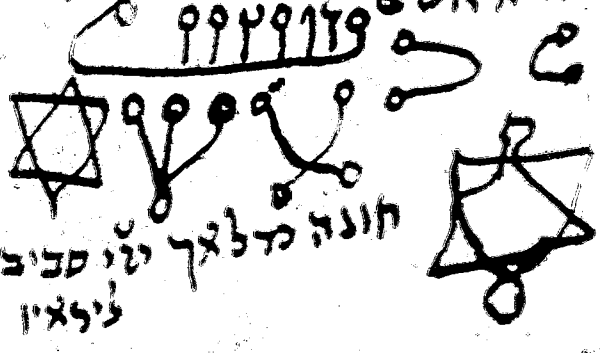 חונה מלאך ייי סביב
ליראיו